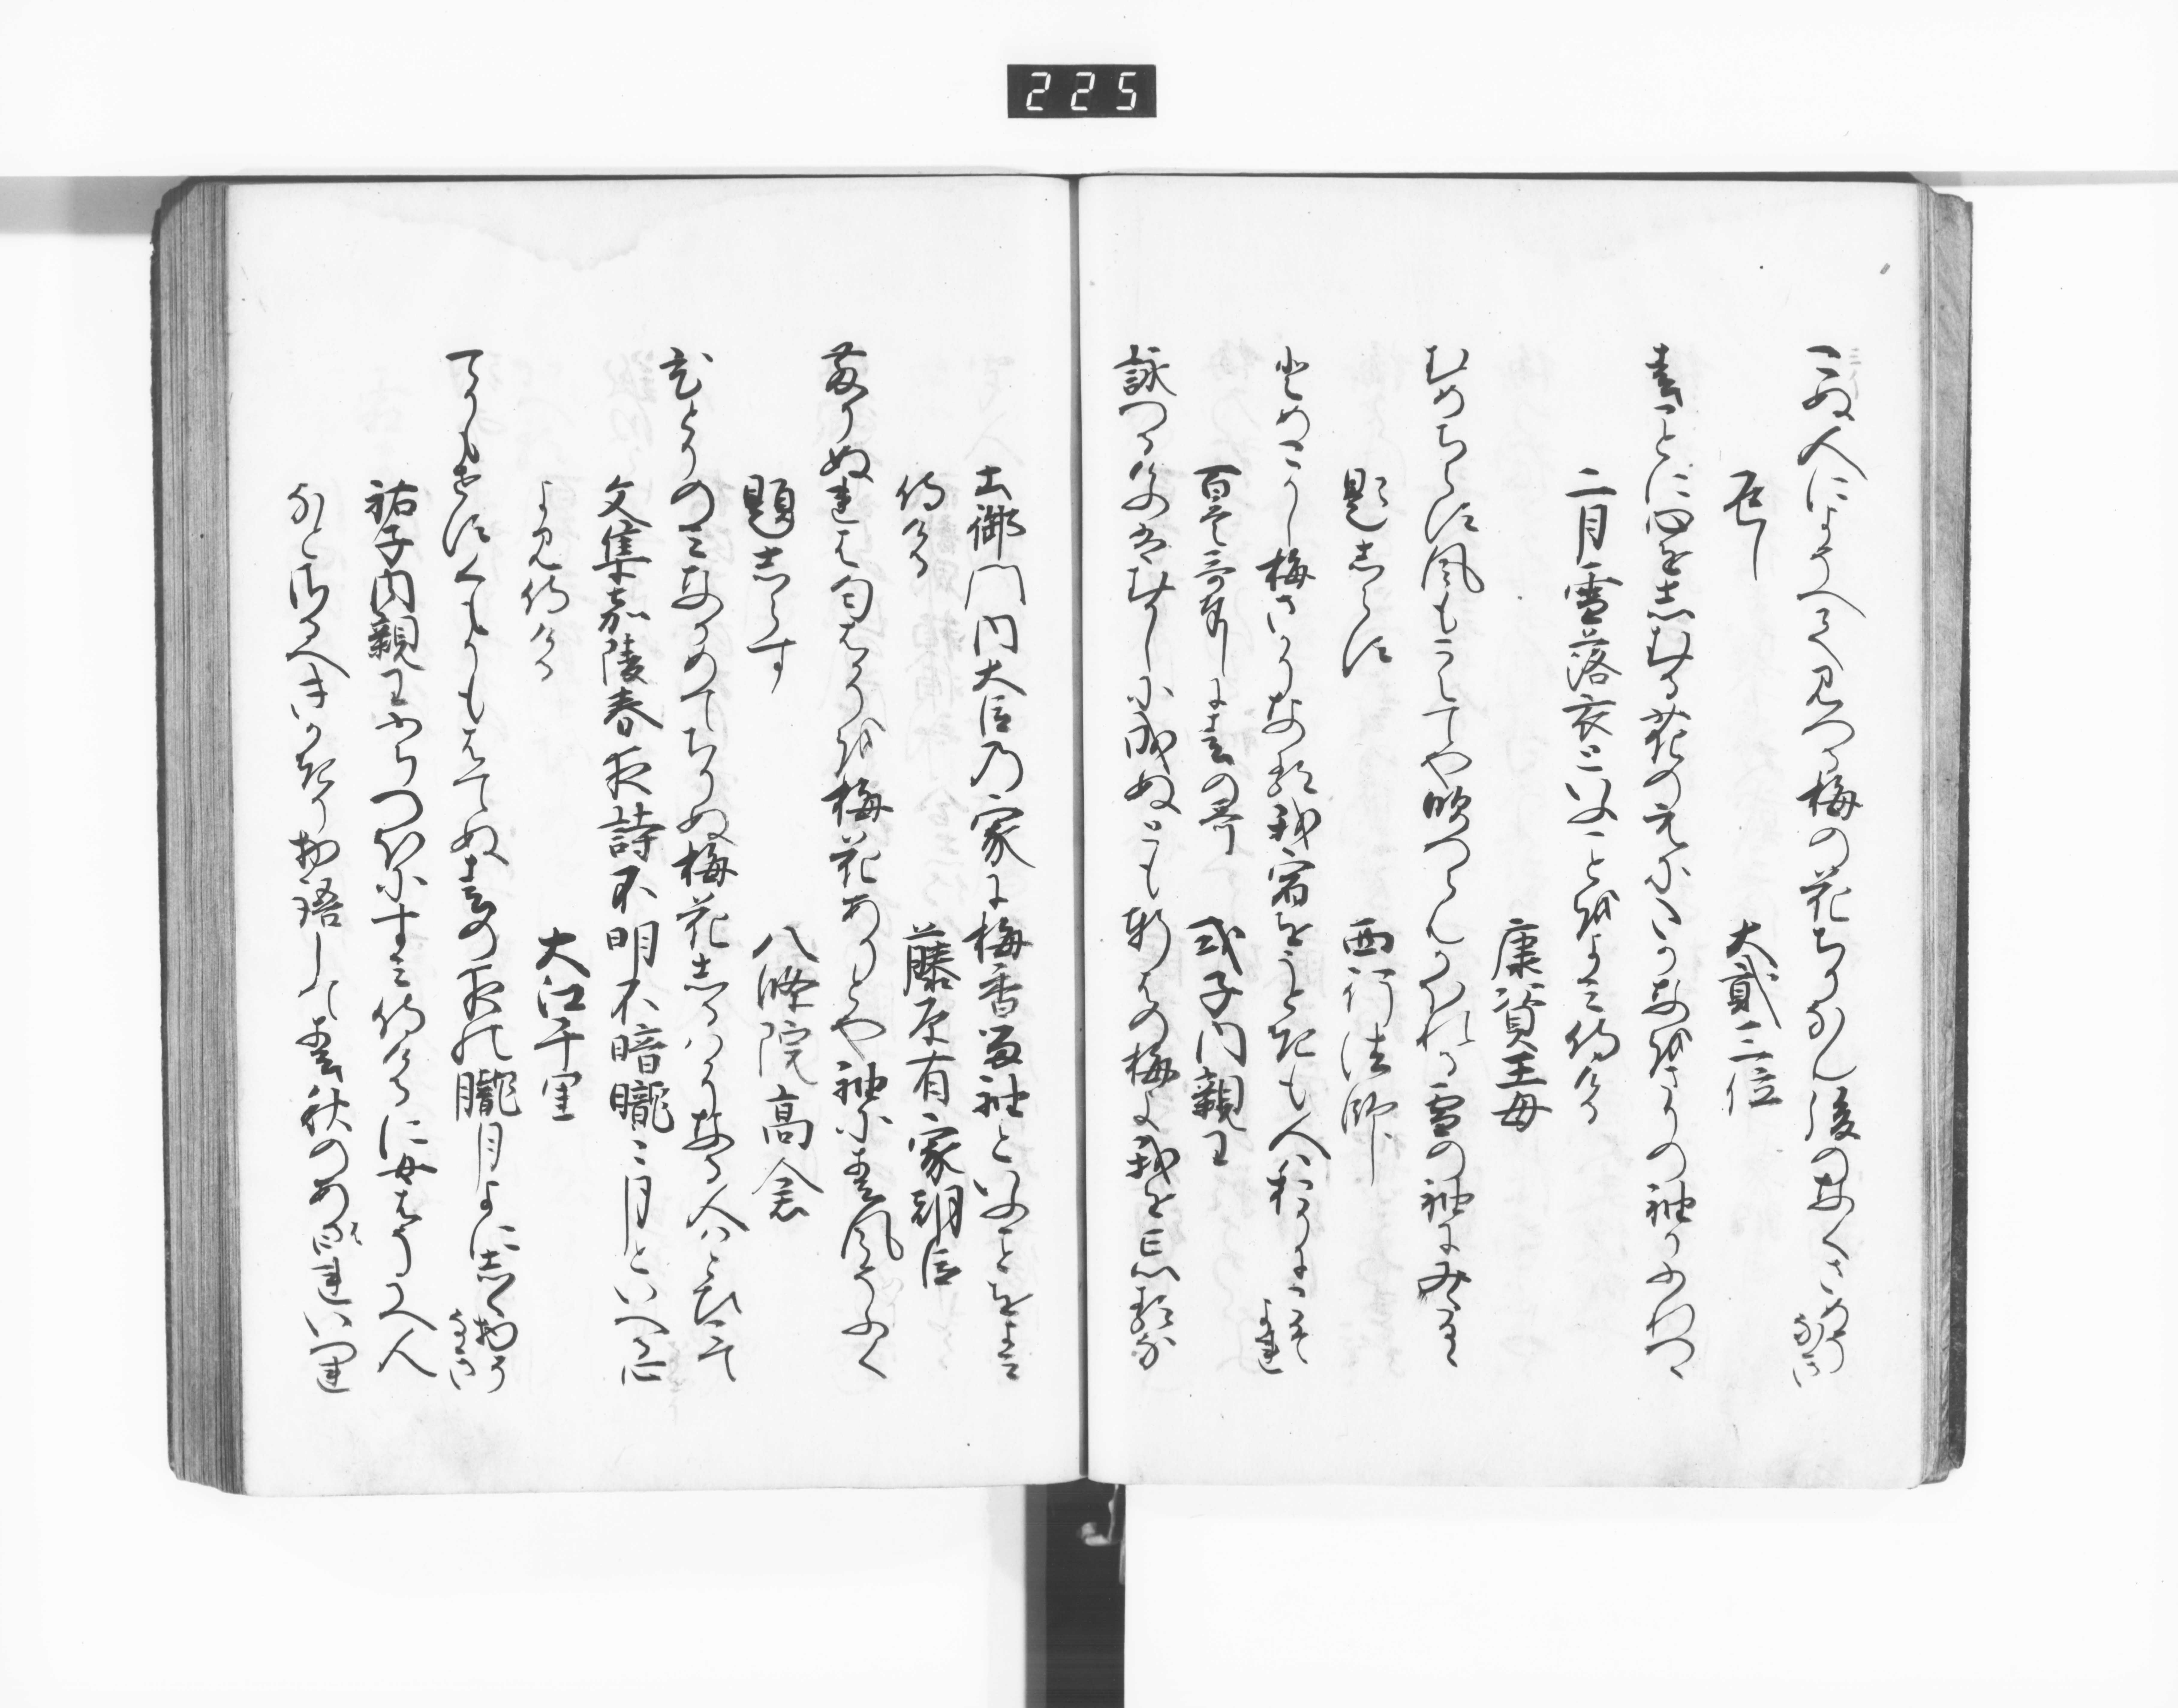 225
こぬ人によそへて見つる梅の花ちりなん後のなくさめそなき
返し
大貳三位
春ことに心をしむる花の元にたかなをさりの袖かふれつる
二月雪落衣といふことをよみ侍ける
康資王母
むめちらす風もこえてや吹つらんかほれる雪の袖にみたるゝ
題しらす
西行法師
とめこかし梅さかりなる我宿をうときも人は折にこそよれ
百首哥奉しに春の哥
式子内親王
詠つるけふはむかしに成ぬとも軒はの梅よ我を忘るな
土御門内大臣の家に梅香留袖といふことをよみ
侍ける
藤原有家朝臣
散りぬれは匂はかりを梅花ありとや袖に春風そふく
題しらす
八條院高倉
ひとりのみなかめてちりぬ梅花しるはかりなる人はとひこて
文集嘉陵春夜詩不明不暗朧々月といへる心
よみ侍ける
大江千里
てりもせすくもりもはてぬ春の夜の朧月よにしく物そなき
祐子内親王ふちつほにすみ侍けるに女はうゝへ人
なとさるへきかきり物語して春秋のあはれいつれ